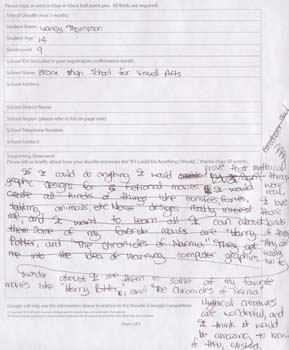 Please type or print in blue or black ball point pen. All fields are required.
Title of Doodle (max 3 words):
Student Name: Vancy Thompson
Student Age: 14
Grade Level: 9
School ID# (included in your registration confirmation email):
School Name: Bronx High School for Visual Arts
School Address:
School District Name:
School Region (please refer to list on page one):
School Telephone Number:
School Contact:
Supporting Statement
Please tell us briefly about how your doodle expresses the "If I Could Do Anything I Would..." theme (max 50 words).
If I could do anything I would prove that mythical
graphic designs for fictional movies. I would things
create all kinds of things like monsters, fonts, were real.
talking animals, etc. designs really interest I love
me and I want to learn all I can about
them. Some of my favorite movies are "Harry
Potter, and "The Chronicles of Narnia". They get
me into the idea of learning computer graphics.
I wonder about I see them in some of my favorite
movies like "Harry Potter", and "The Chronicles of Narnia."
Mythical creatures
are wonderful, and
I think it would
be amazing to know
if they existed.
Google will only use the information above in relation to the Doodle 4 Google Competition.
Page 1 of 1